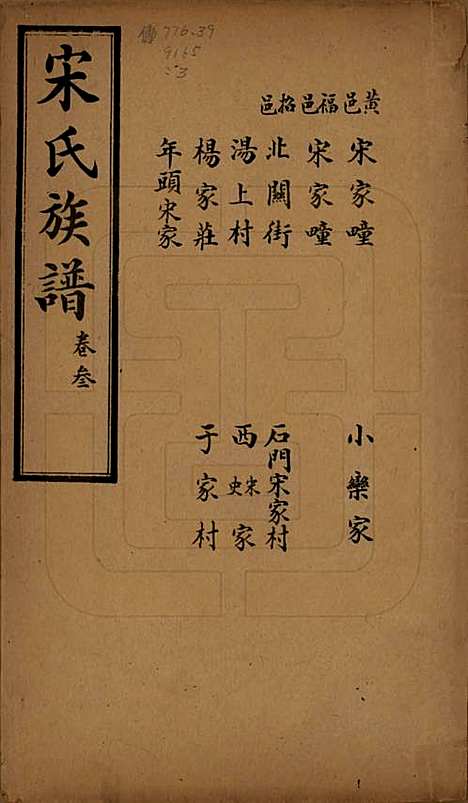 黃邑 福邑 招邑
宋家疃 小欒家
宋家疃
北關街 石門宋家村
湯上村 西宋史家
楊家莊 于家村
年頭宋家
宋氏族譜 卷叄
776.39
9165
:3